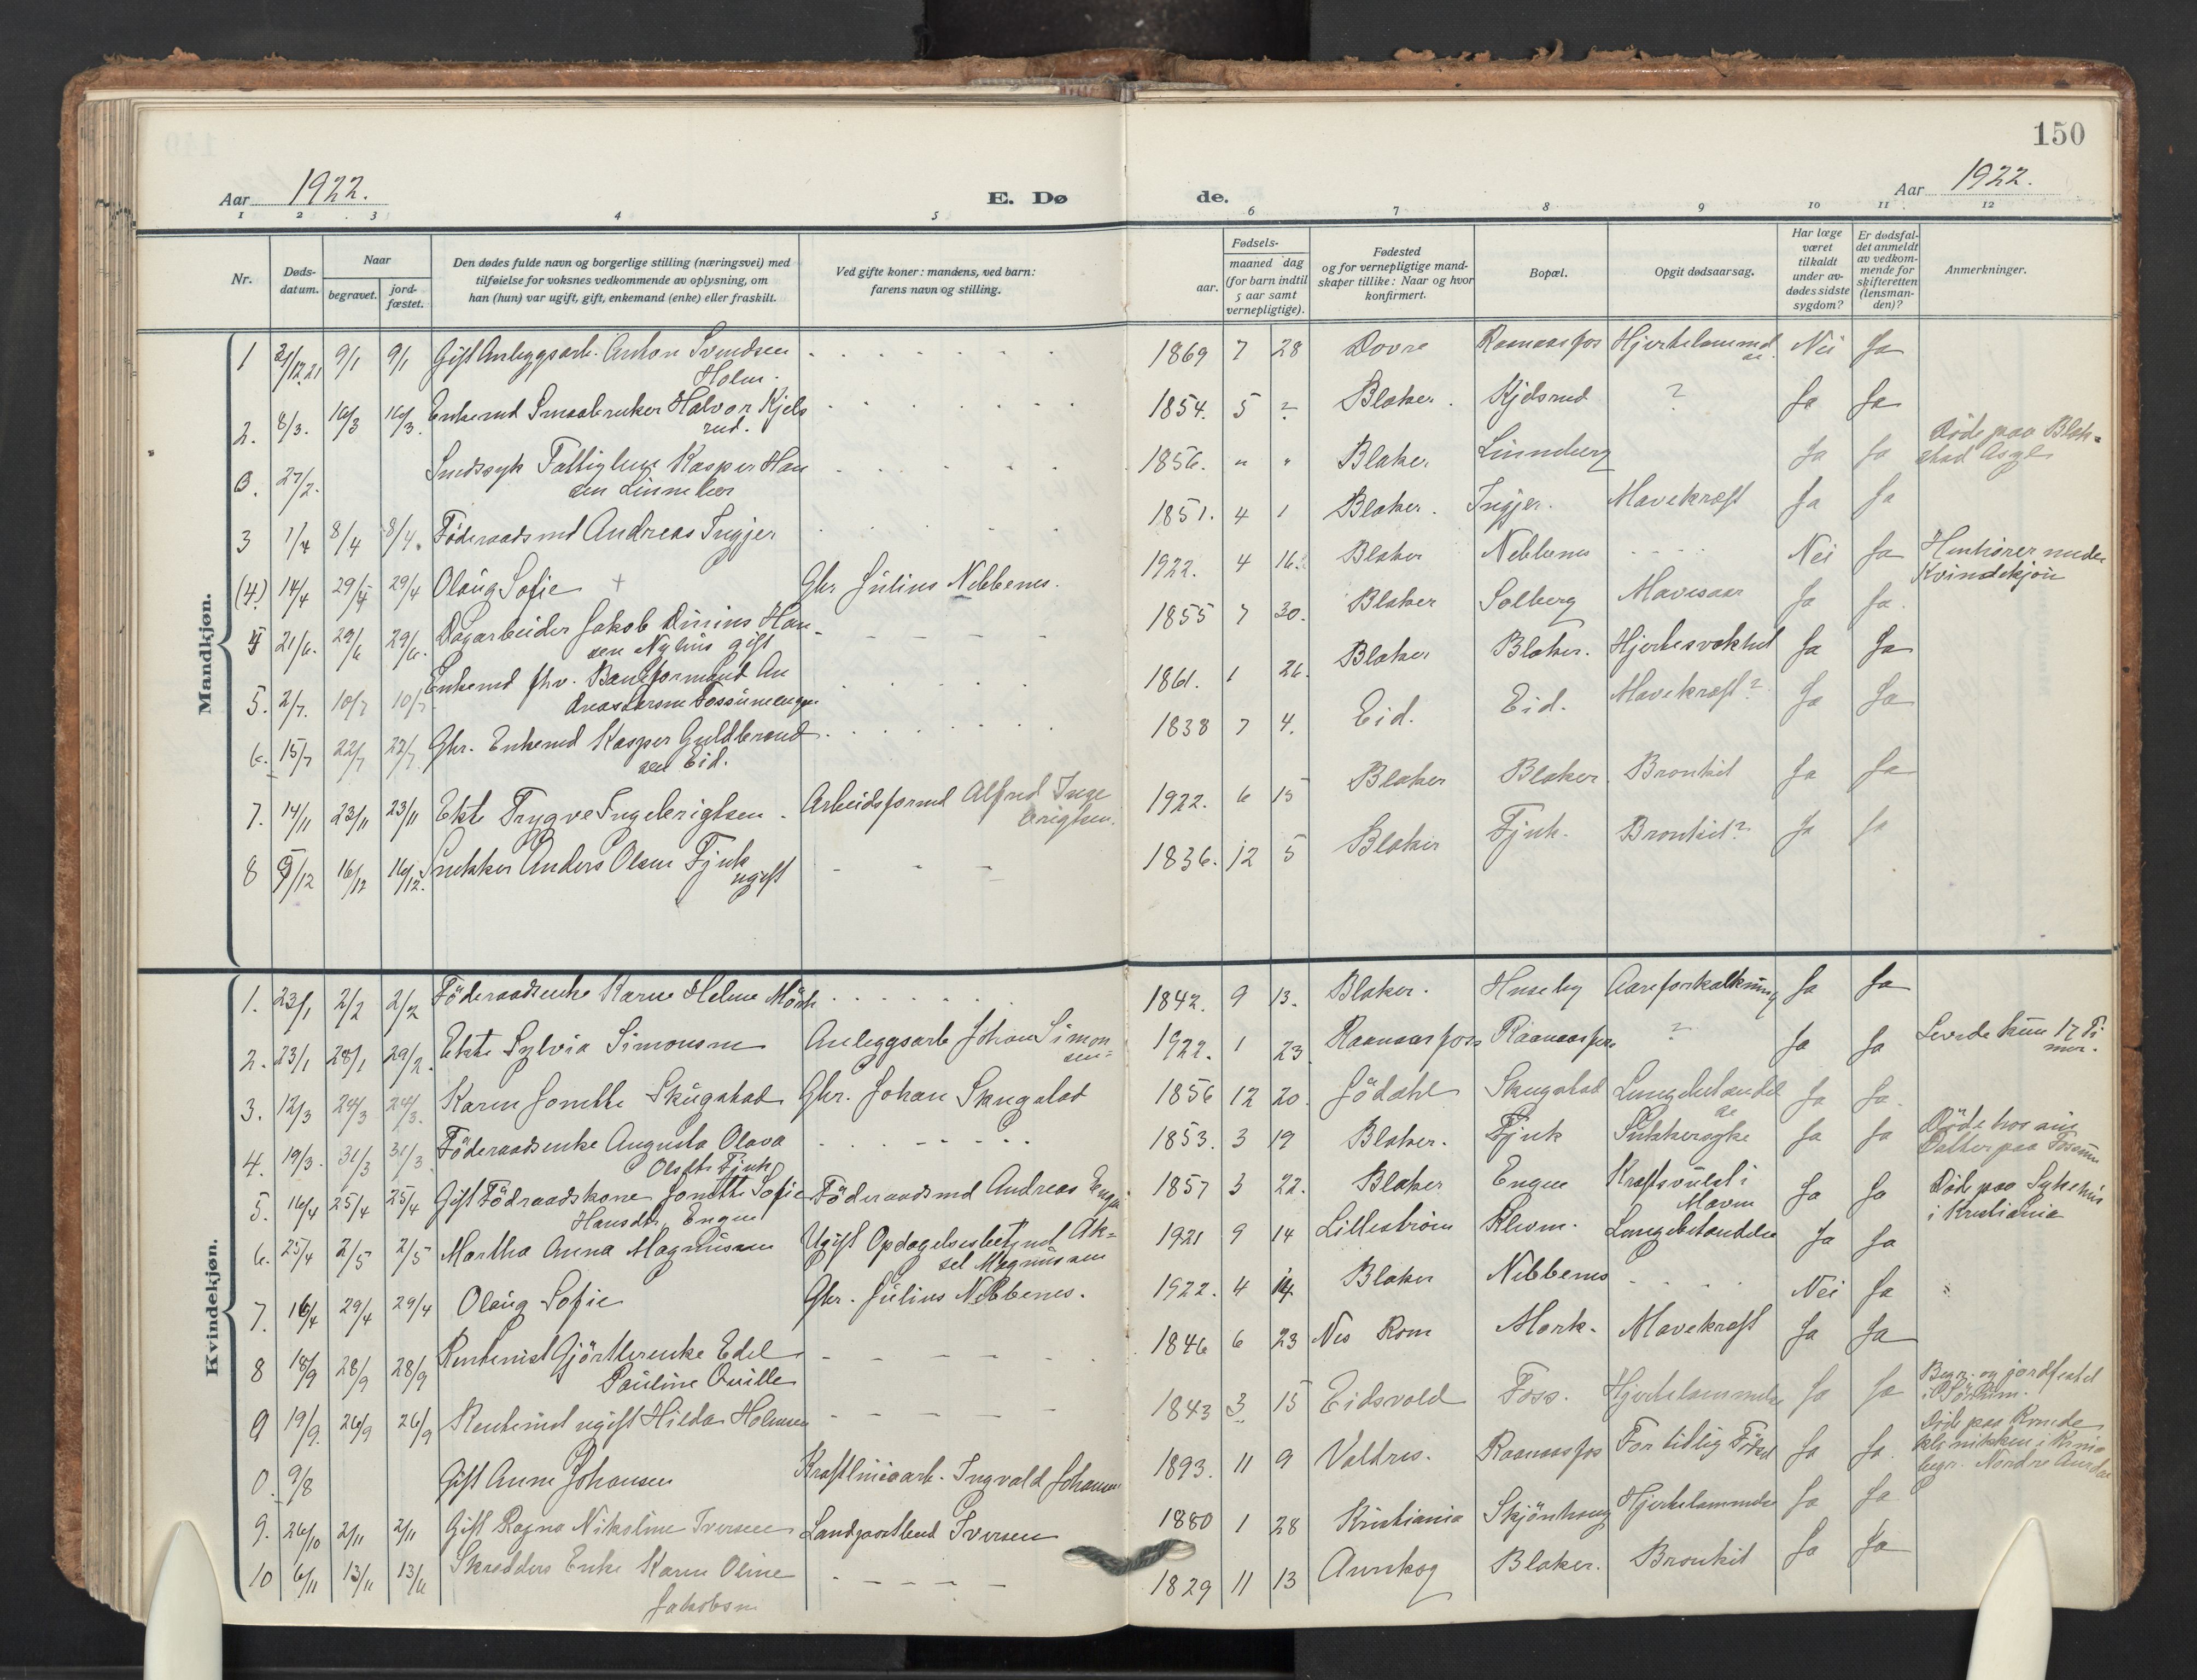 150
Aar 1922.
E. Dø
de.
Aar 1922.
1 2 3 4 5 6 7 8 9 10 11 12
Nr.
Døds-
datum.
Naar
begravet.
jord-
fæstet.
Den dødes fulde navn og borgerlige stilling (næringsvei) med
tilføielse for voksnes vedkommende av oplysning, om
han (hun) var ugift, gift, enkemand (enke) eller fraskilt.
Ved gifte koner: mandens, ved barn:
farens navn og stilling.
Fødsels-
aar.
maaned dag
(for barn indtil
5 aar samt
vernepligtige).
Fødested
og for vernepligtige mand-
skaper tillike: Naar og hvor
konfirmert.
Bopæl.
Opgit dødsaarsag.
Har læge
været
tilkaldt
under av-
dødes sidste
sygdom?
Er dødsfal-
det anmeldt
av vedkom-
mende for
skifteretten
(lensman-
den)?
Anmerkninger.
Mandkjøn.
1 31/12.21 9/1 9/1 Gift Anlegsarb. Anton Svendsen
Holm. 1869 7 28 Dovre Raanaasfos Hjertelammelse. Nei Ja
2. 8/3. 16/3 16/3. Enkemd Smaabruker Halvor Kjels
rud. 1854. 5 ? Blaker. Kjelsrud ? Ja Ja
0. 27/2. Sindssyk Fattiglem Kasper Han
sen Linneberg 1856. " " Blaker Linneberg Ja Ja Døde paa Blak=
stad Asyl
3 1/4 8/4 8/4. Föderaadsmd Andreas Ingjer 1851. 4 1 Blaker. Ingjer. Mavekræft Ja Ja
(4) 14/4 29/4 29/4 Olaug Sofie + Gbr. Julius Nebbenes. 1922. 4 16. Blaker Nebbenes Nei Ja Henhører under
Kvindekjøn
4 21/6. 29/6 29/6. Dagarbeider Jakob Dinius Han-
sen Nylius gift 1855 7 30. Blaker Solberg Mavesaar Ja Ja.
5. 2/7. 10/7 10/7 Enkemd fhv. Baneformand An
dreas Larsen Fossumengen 1861. 1 26. Blaker Blaker. Hjertesvakhet Ja Ja
6. 15/7 22/7 22/7. Gbr. Enkemd Kasper Guldbrand
sen Eid. 1838 7 4. Eid. Eid. Mavekræft? Ja Ja
7. 14/11 23/11 23/11 Ekte Trygve Ingebrigtsen. Arbeidsformd Alfred Inge
brigtsen. 1922. 6 15 Blaker Blaker Bronkit Ja Ja
8 5/12 16/12 16/12. Snekker Anders Olsen Fjuk
ugift 1836. 12 5 Blaker Fjuk. Bronkit? Ja Ja
Kvindekjøn.
1. 23/1 2/2 2/2 Föderaadsenke Karen Helene Mörk 1842. 9 13. Blaker. Huseby Aareforkalkning Ja Ja
2. 23/1 28/1 29/2. Ekte Sylvia Simonsen Anleggsarb Johan Simon
sen= 1922. 1 23 Raanaasfoss Raanaasfos ? Ja Ja Levede kun 17 Ti
mer.
3. 12/3 24/3 24/3. Karen Jonette Skugstad Gbr. Johan Skugstad 1856 12 20. Jödahl Skugstad Lungebetændel
se Ja Ja.
4. 19/3. 31/3 31/3. Föderaadsenke Augusta Olava
Olsdtr Fjuk 1853. 3 19 Blaker. Fjuk Sukkersyke Ja Ja Døde hos sin
Datter paa Fossum
5. 16/4 25/4 25/4 Gift Födraadskone Jonette Sofie
Hansdtr. Engen Föderaadsmd Andreas Engen 1857 3 22. Blaker Engen Kræftsvulst i
Maven Ja Ja Døde paa Sykehus
i Kristiania
6. 25/4 2/5 2/5 Martha Anna Magnussen Ugift Opdagelsesbetjent Ak=
sel Magnussen 1921 9 14 Lillestrøm Lungebetændelse Ja Ja
7. 16/4 29/4 29/4 Olaug Sofie Gbr. Julius Nebbenes. 1922. 4 14 Blaker Nebbenes Nei Ja "
8 18/9 28/9 28/9 Rentenist Gjörtlerenke Edel
Pauline Qville 1846 6 23 Nes Rom Mork. Mavekræft Ja Ja
9 19/9. 26/9 26/9 Rentenist ugift Hilda Holmsen 1843 3 15 Eidsvold Foss. Hjertelammelse Ja Ja Begr. og jordfestet
i Sörum.
0. 9/8 Gift Anne Johansen Kraftlinieoarb. Ingvald Johansen 1893. 11 9 Valdres. Raanaasfos For tidlig Födsel Ja Ja. Døde paa Kvinde
klinikken i Krnia
begr. Nordre Aurdal
9. 26/10 2/11 2/11 Gift Ragna Nikoline Iversen Landpostbud Iversen 1880 1 28 Kristiania Skjønhaug Hjertelammelse Ja Ja
10 6/11 13/11 13/11 Skrædders Enke Karen Oline
Jakobsen 1829 11 13 Aurskog Blaker. Bronkit Ja Ja